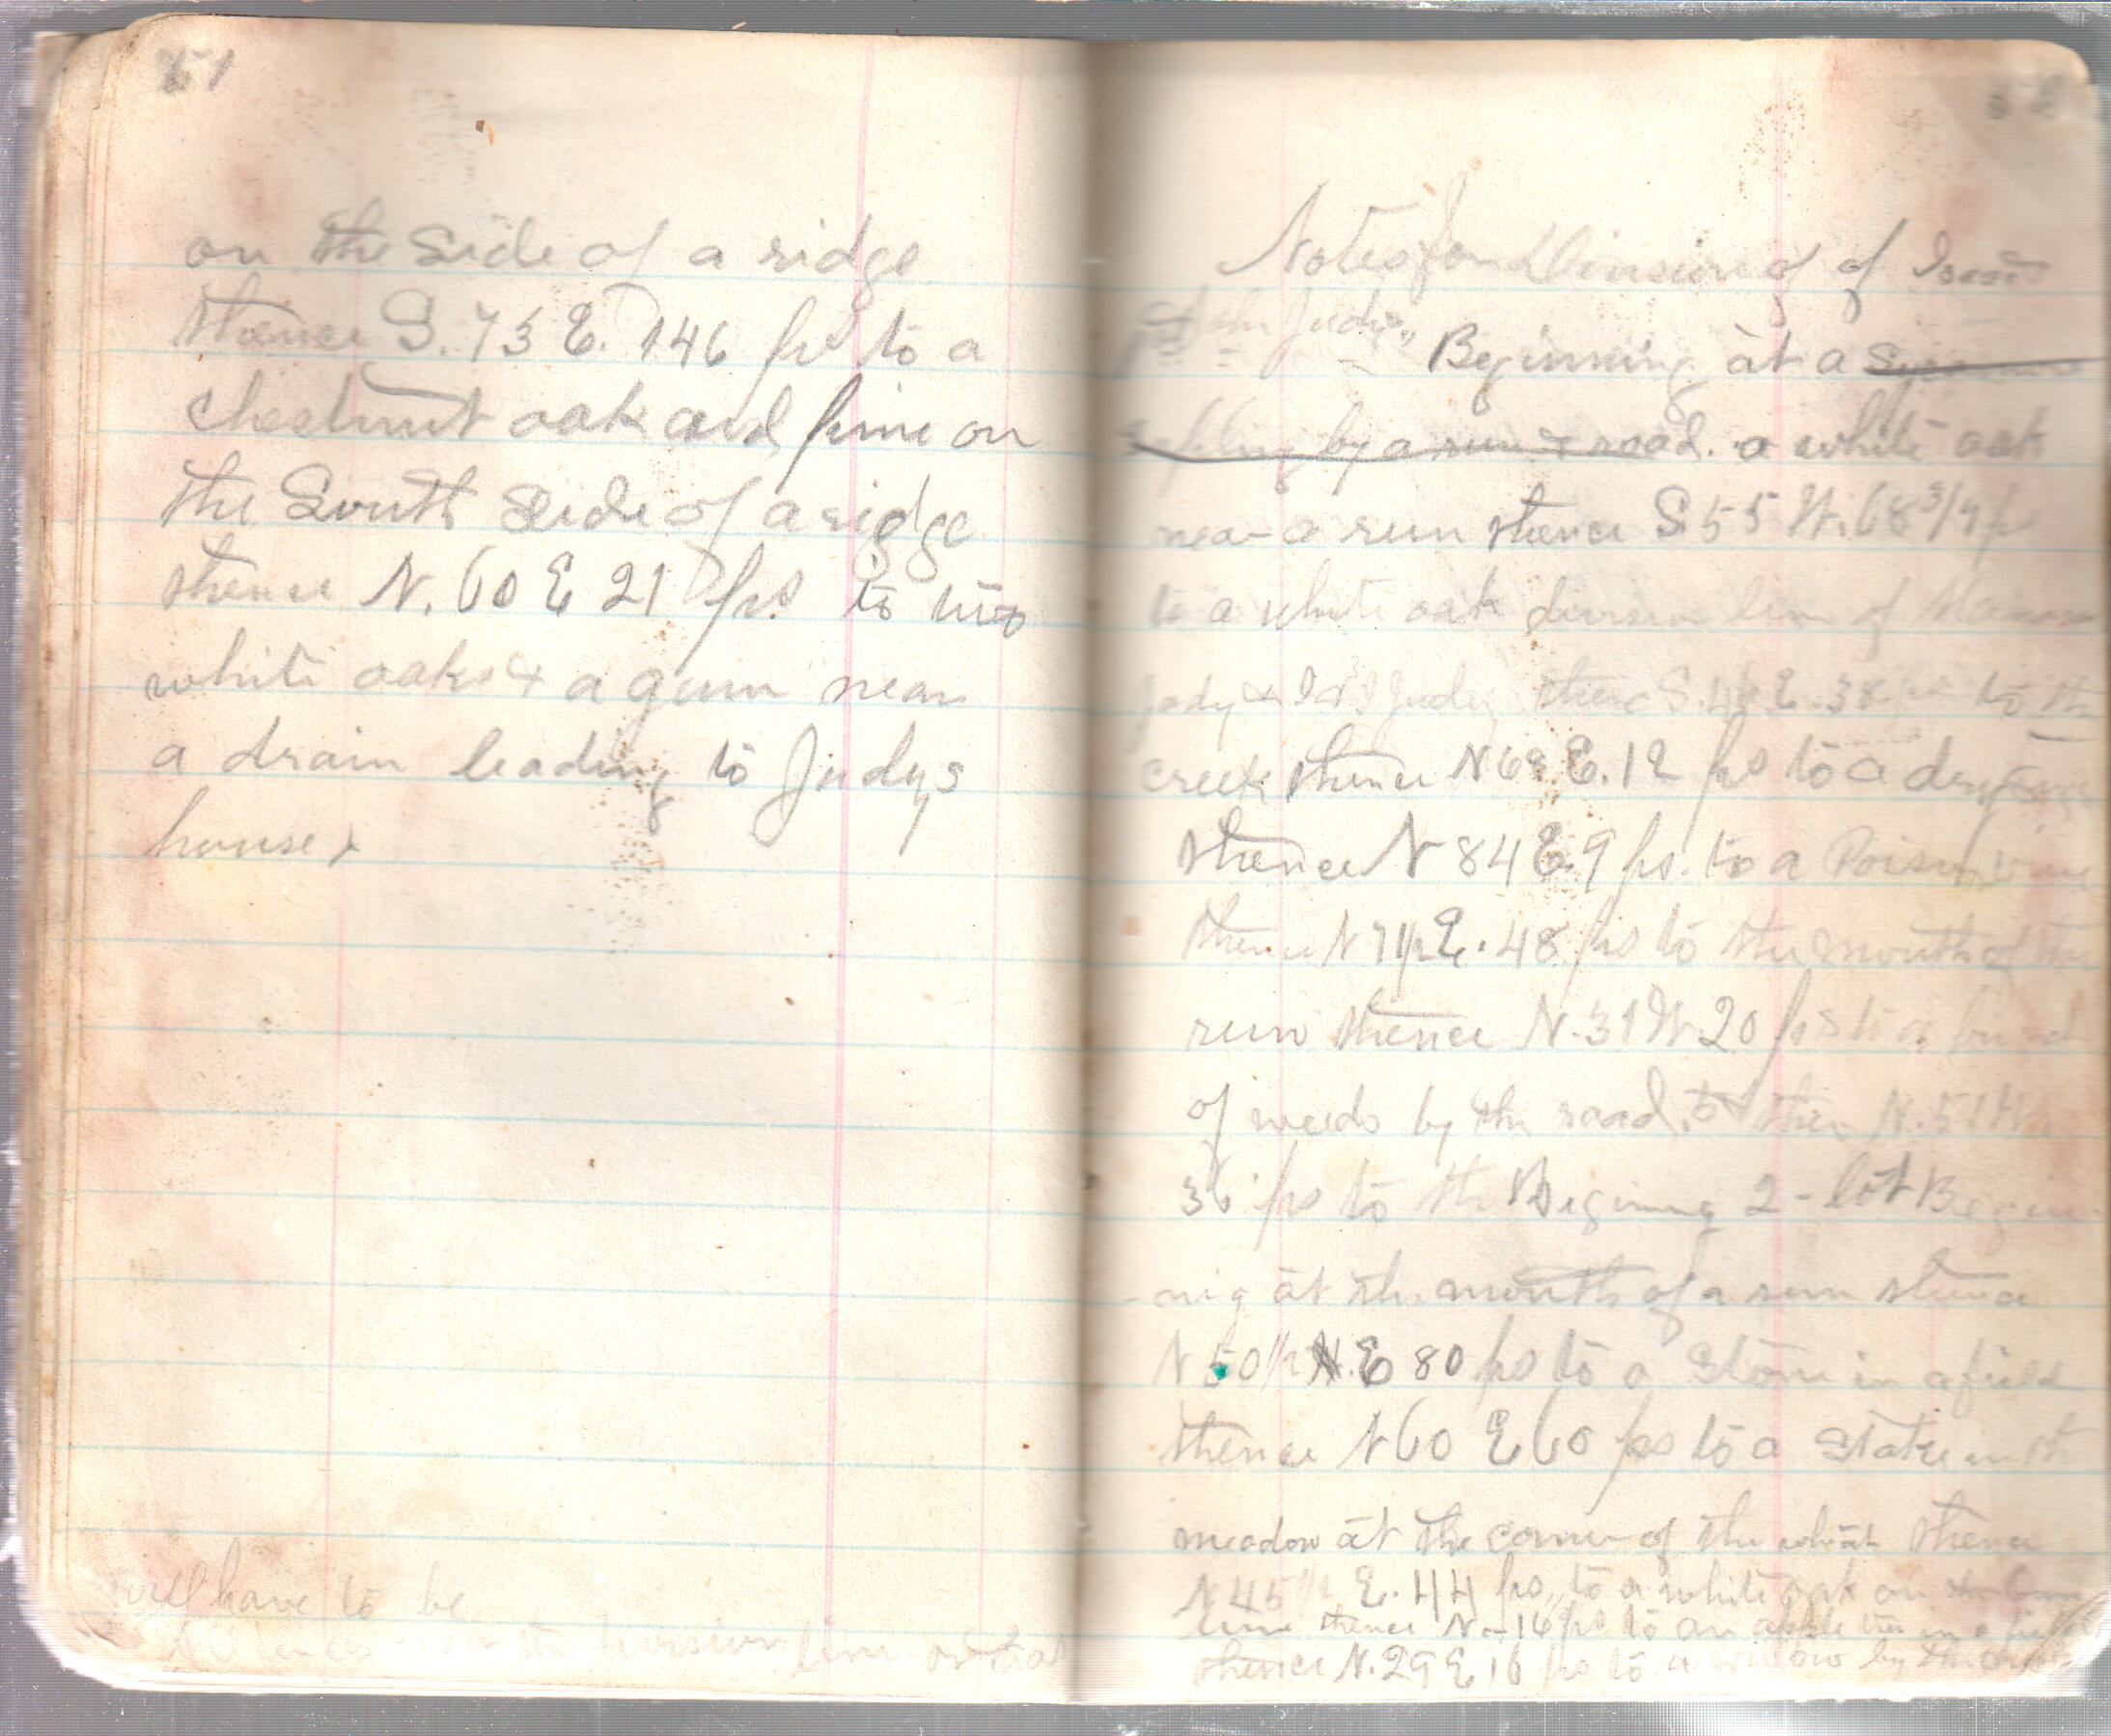 51
on the side of a ridge
thence S. 73 E. 146 ps to a
chestnut oak and pine on
the South side of a ridge
thence N. 60 E 21 ps. to two
white oaks & a gum near
a drain leading to Judys
house
will have to be
division line
Notes for Division of of
Judy Beginning at a
by a run & road. a white oak
near a run thence S 55 W. 68 3/4 p
to a white oak division line of
Judy & Judy thence S. 46 E. 38 to the
creek thence N 68 E. 12 ps to a
thence N 84 E. 9 ps. to a Poison vine
thence N 71 1/2 E. 48 ps to the mouth of the
run thence N. 31 W 20 ps to a bunch
of weeds by the road. N. 51 W
36 ps to the Begining 2 - lot Begin
-nig at the mouth of a run thence
N 50 1/2 E 80 ps to a Stone in a field
thence N 60 E 60 ps to a Stake in the
meadow at the corner of the thence
N 45 E. 44 ps to a white oak on
line thence N - 16 ps to an apple tree in a field
thence N. 29 E 16 ps to a willow by the